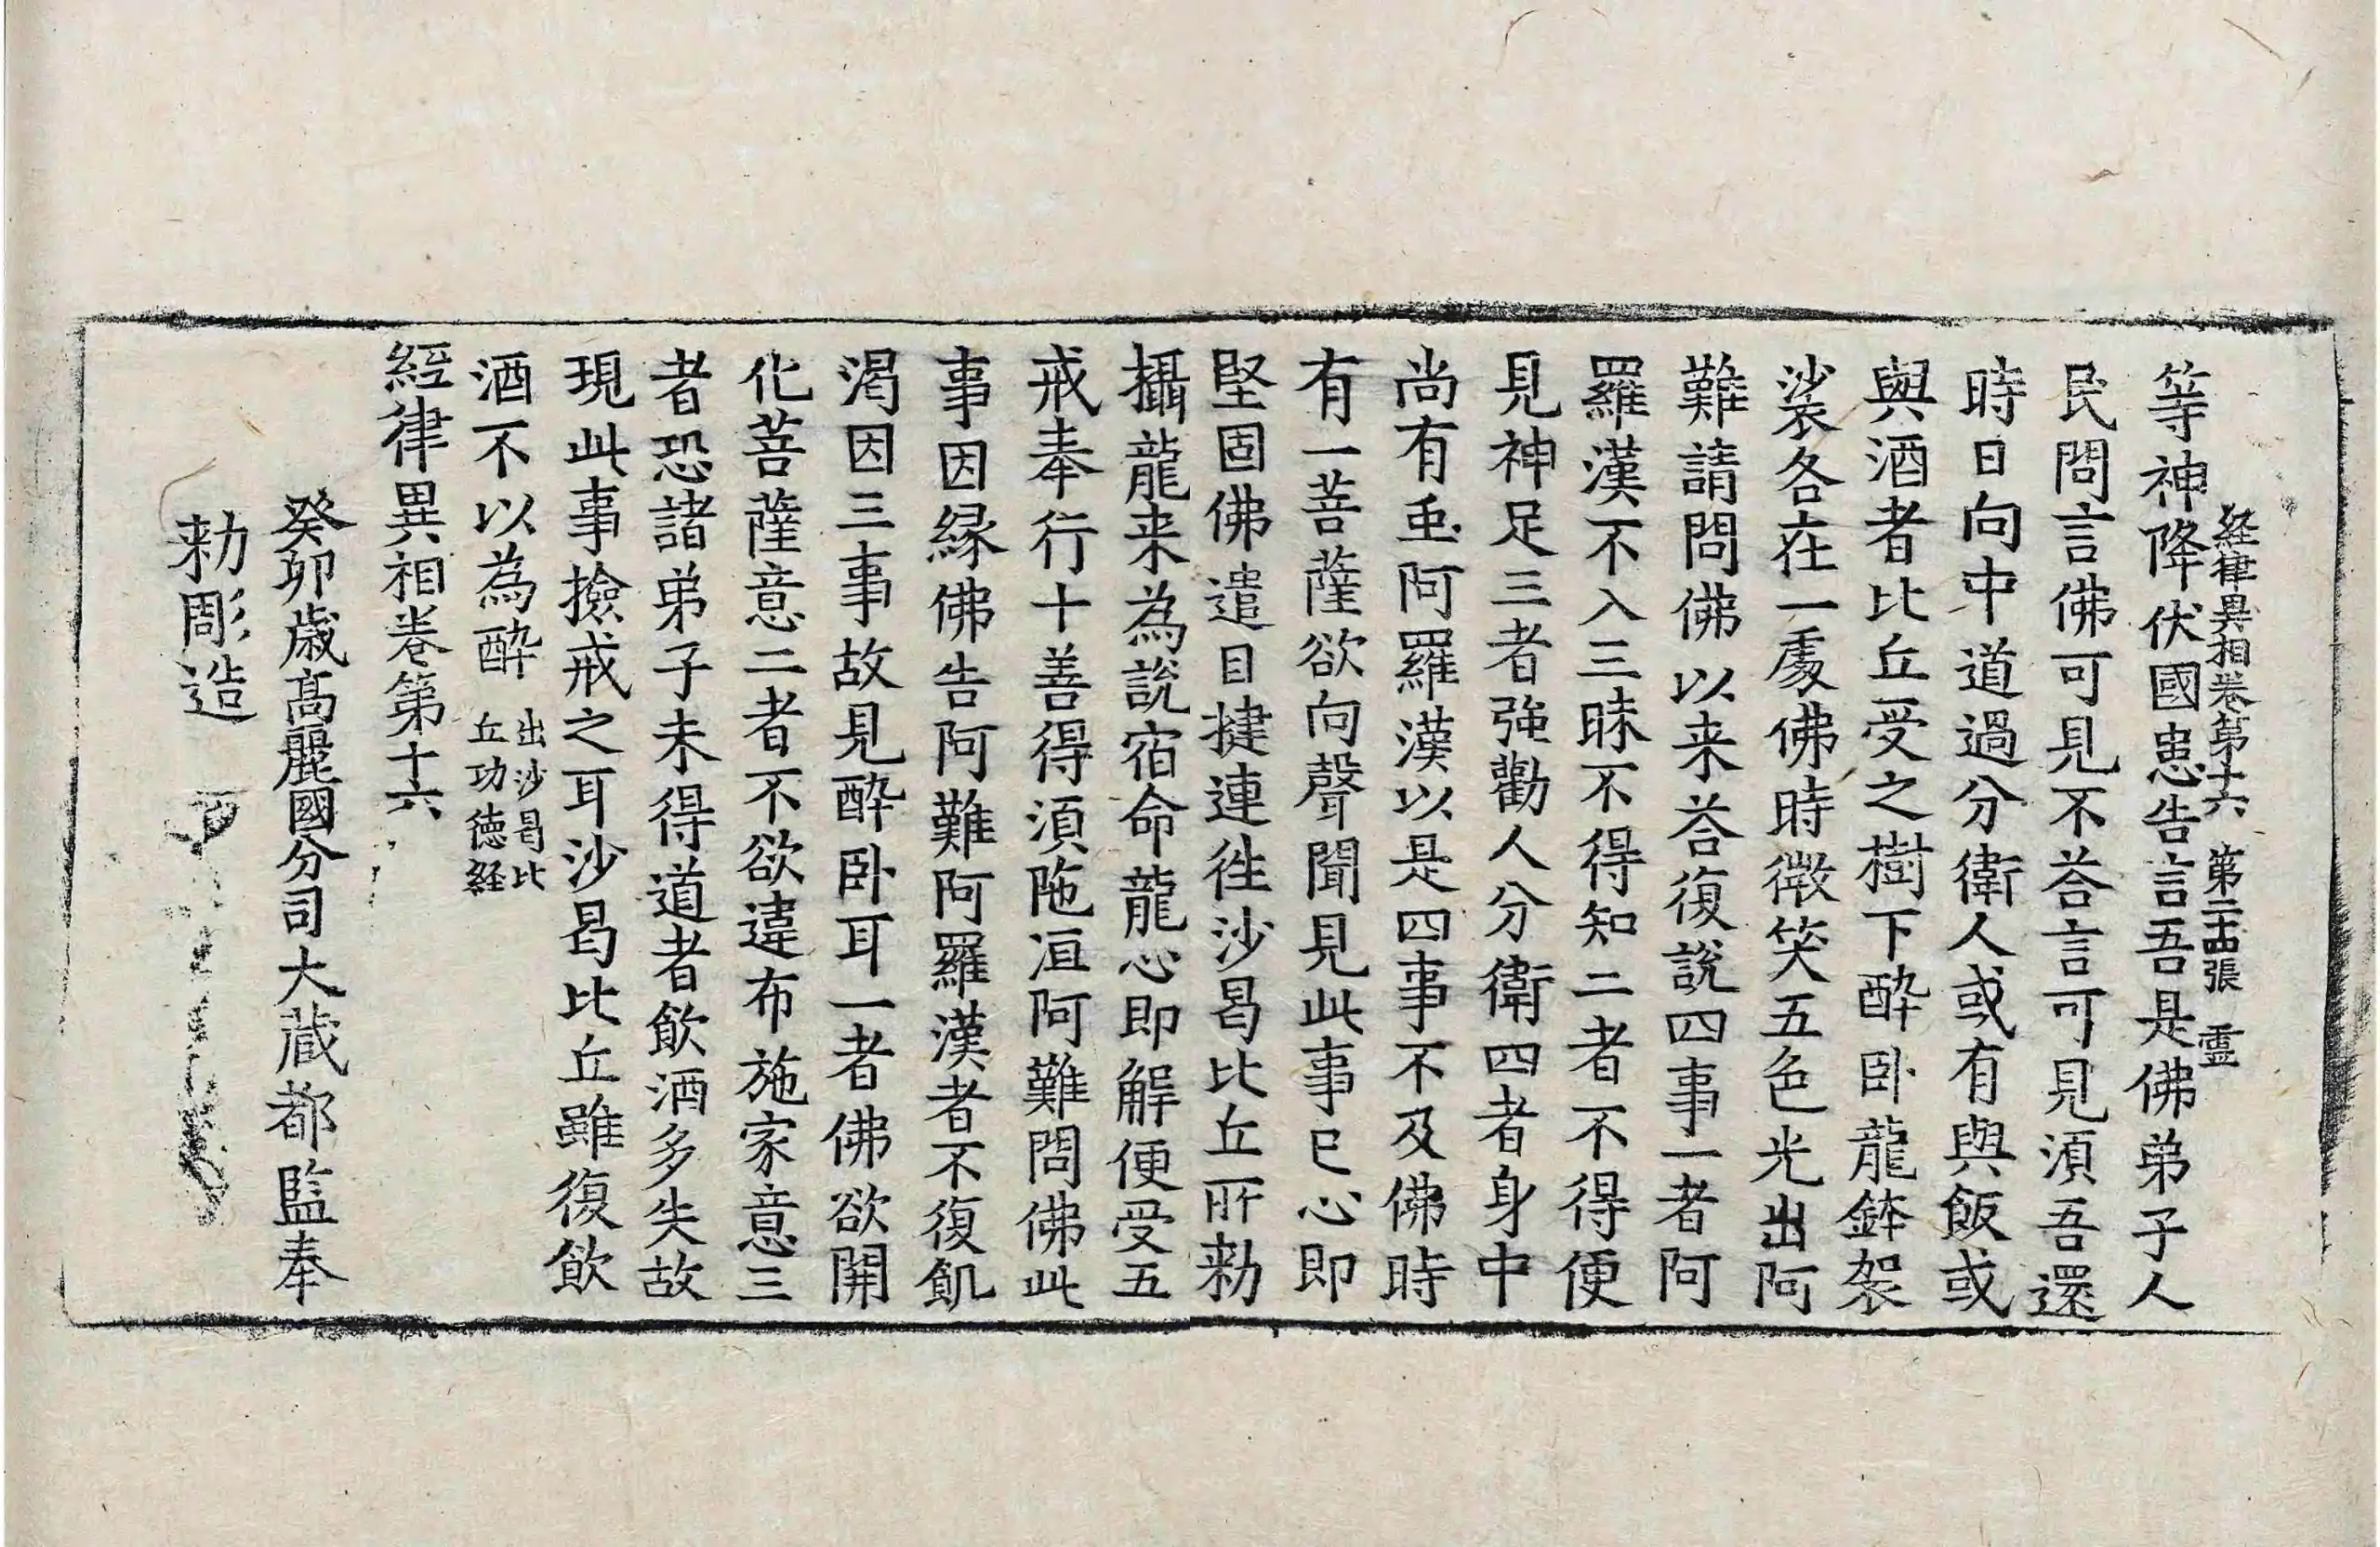 経律異相卷第十六 第二十四張 霊
等神降伏國患告言吾是佛弟子人
民問言佛可見不荅言可見湏吾還
時日向中道過分衛人或有與飯或
與酒者比丘受之樹下醉卧龍鉢袈
裟各在一處佛時微笑五色光出阿
難請問佛以来荅復說四事一者阿
羅漢不入三昧不得知二者不得便
見神足三者強勸人分衛四者身中
尚有虫阿羅漢以是四事不及佛時
有一菩薩欲向聲聞見此事已心即
堅固佛遣目揵連徃沙曷比丘所勑
攝龍来為說宿命龍心即解便受五
戒奉行十善得湏陁洹阿難問佛此
事因縁佛告阿難阿羅漢者不復飢
渴因三事故見醉卧耳一者佛欲開
化菩薩意二者不欲違布施家意三
者恐諸弟子未得道者飲酒多失故
現此事撿戒之耳沙曷比丘雖復飲
酒不以為醉 出沙曷比
丘功德経
經律異相卷第十六
癸卯歳髙麗國分司大藏都監奉
勑彫造